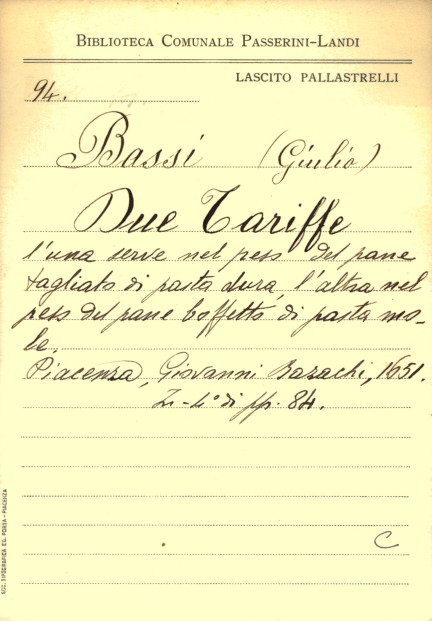 BIBLIOTECA COMUNALE PASSERINI-LANDI
LASCITO PALLASTRELLI
94.
Bassi (Giulio)
Due Tariffe
l'una serve nel pess del pane
tagliato di pasta dura, l'altra nel
pess del pane boffetto di pasta mo-
le.
Piacenza, Giovanni Bazachi, 1651.
In-4° di pp. 84.
C
SOC. TIPOGRAFICA ED. PORTA - PIACENZA